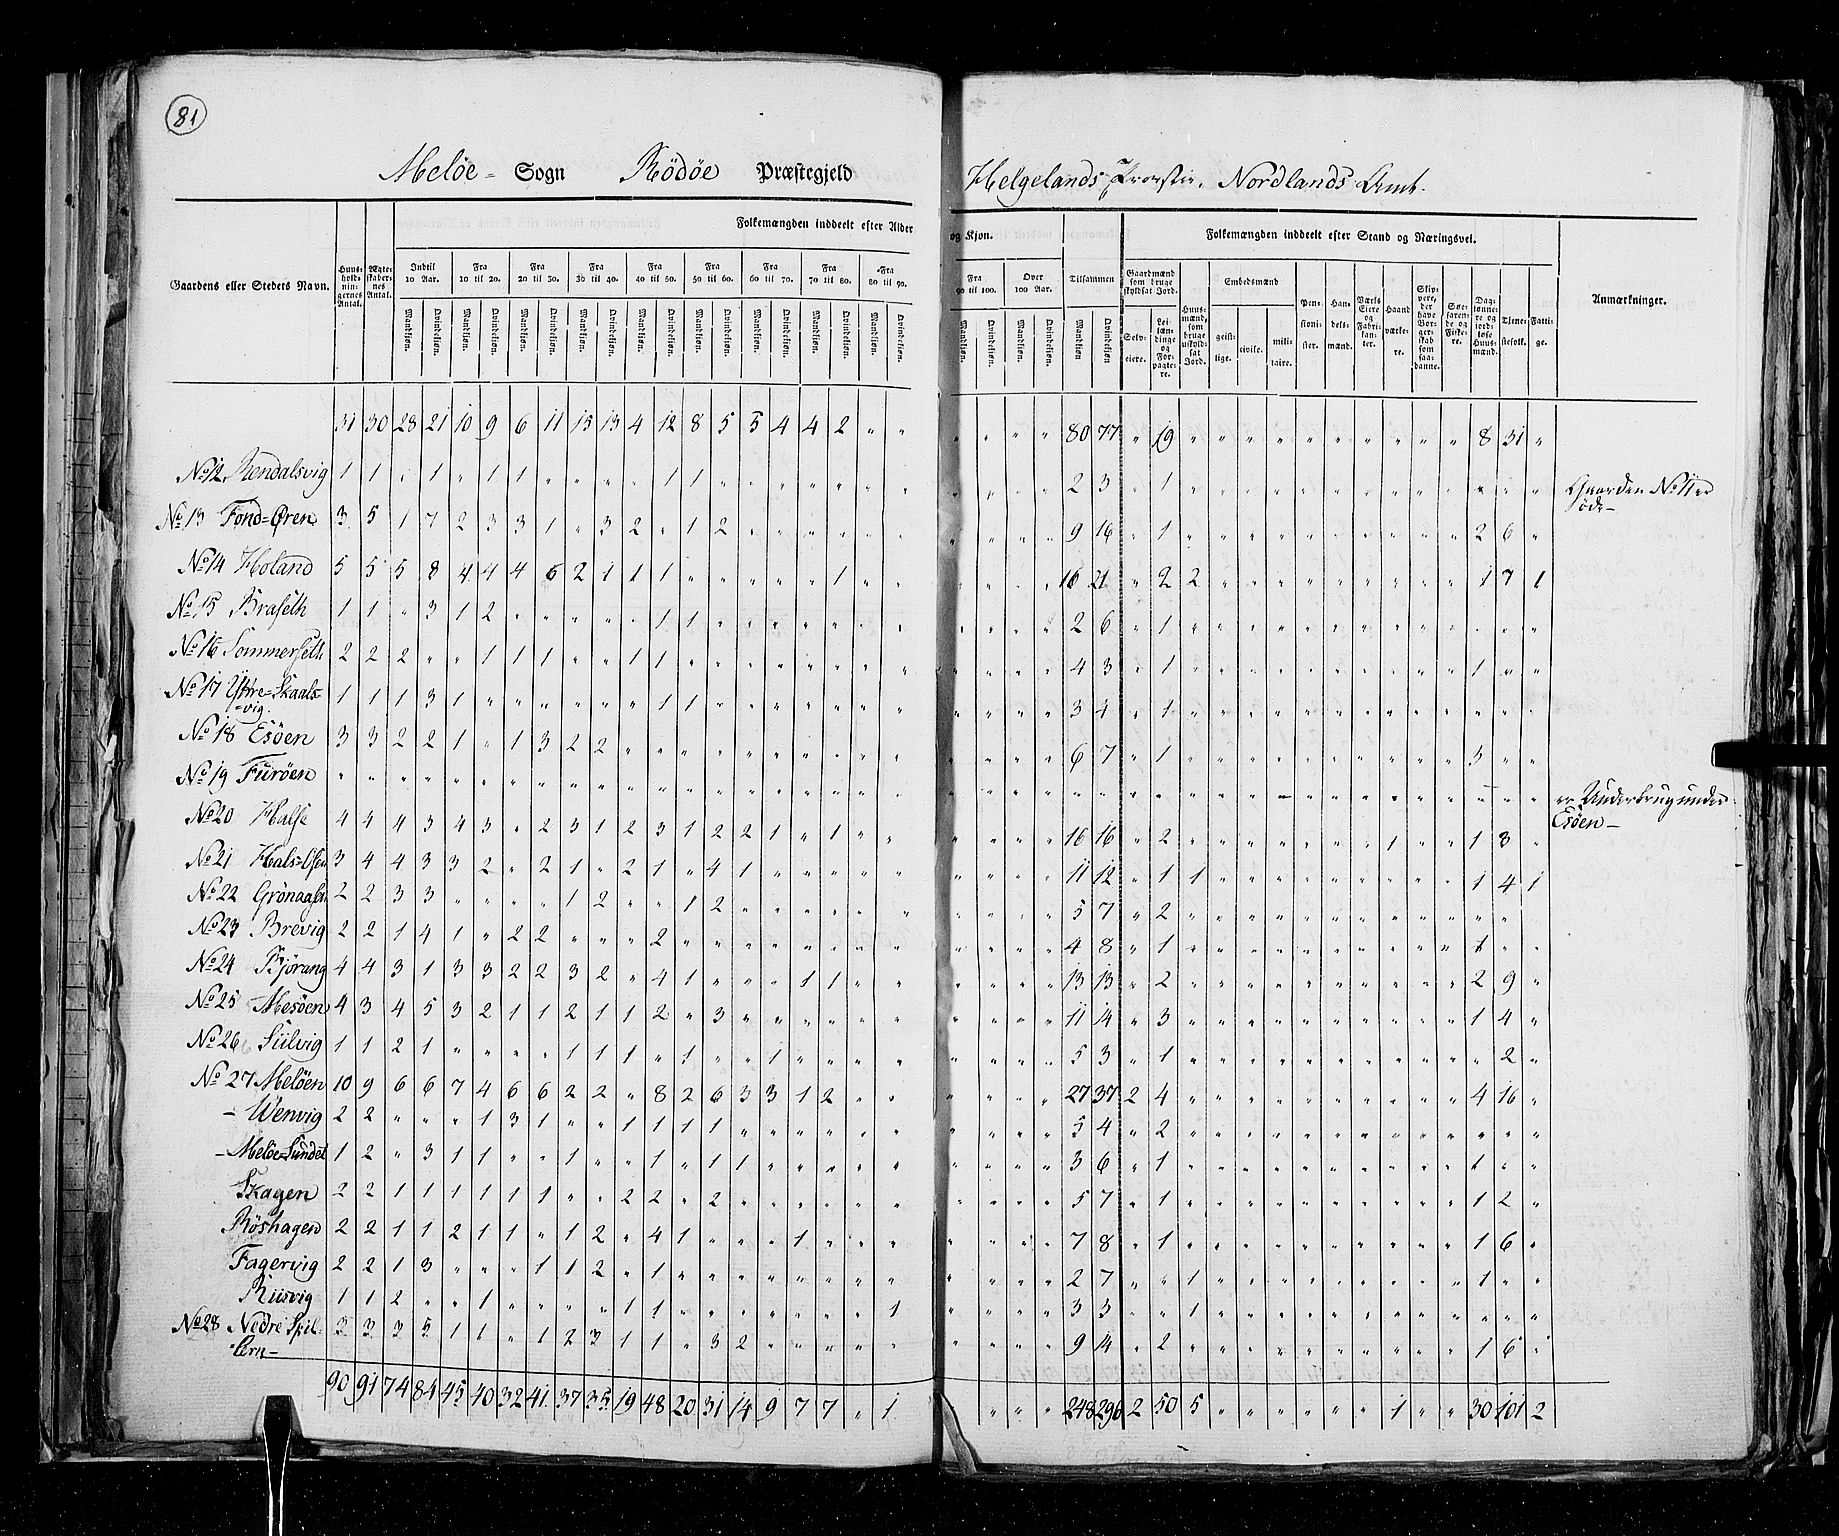 81
Meløe = Sogn Rödöe Præstegjeld Helgelands Provstie. Nordlands Amt.
Gaardens eller Steders Navn.
Huusholdningernes Antal.
Ægteskabernes Antal.
Folkemængden inddeelt efter Alder og Kjøn.
Indtil 10 Aar. Fra 10 til 20. Fra 20 til 30. Fra 30 til 40. Fra 40 til 50. Fra 50 til 60. Fra 60 til 70. Fra 70 til 80. Fra 80 til 90. Fra 90 til 100. Over 100 Aar. Tilsammen
Mandkiøn. Qvindekiøn.
Folkemængden inddeelt efter Stand og Næringsvei.
Gaardmænd som bruge skyldsat Jord. Selveiere. Leilændinge og Forpagtere.
Huusmænd, som bruge uskyldsat Jord.
Embedsmænd geistlige. civile. militaire.
Pensionister. Handelsmænd. Værks Eiere og Fabrikanter. Haandværkere.
Skippere, der have Borgerskab som saadanne.
Søefarende og Fiskere.
Daglønnere og jordløse Huusmænd.
Tjenestefolk. Fattige.
Anmærkninger.
31 30 28 21 10 9 6 11 15 13 4 12 8 5 5 4 4 2 " " " " " " 80 77 " 19 " " " " " " " " " " 8 31 "
No 12. Rendalsvig 1 1 " 1 " 1 1 " " " " 1 1 " " " " " " " " " " " 2 3 " 1 " " " " " " " " " " " " " Gaarden No 11 er øde –
No 13 Fond=Øren 3 5 1 7 2 3 3 1 " 3 2 " 1 2 " " " " " " " " " " 9 16 " 1 " " " " " " " " " " 2 6 "
No 14 Holand 5 5 5 8 4 4 4 6 2 1 1 1 " " " " " 1 " " " " " " 16 21 " 2 2 " " " " " " " " " 1 7 1
No 15 Braseth 1 1 " 3 1 2 " " " " " 1 1 " " " " " " " " " " " 2 6 " 1 " " " " " " " " " " " " "
No 16 Sommerseth 2 2 2 " " 1 1 1 " " 1 1 " " " " " " " " " " " " 4 3 " 1 " " " " " " " " " " 1 " "
No 17 Yttre=Skaals=vig. 1 1 1 3 1 " " " " " " 1 1 " " " " " " " " " " " 3 4 " 1 " " " " " " " " " " " " "
No 18 Esöen 3 3 2 2 1 " 1 3 2 2 " " " " " " " " " " " " " " 6 7 " 1 " " " " " " " " " " 3 " "
No 19 Furöen " " " " " " " " " " " " " " " " " " " " " " " " " " " " " " " " " " " " " " " " " er Underbrug under Esöen –
No 20 Halse 4 4 4 3 4 3 " 2 3 1 2 3 1 2 2 1 " 1 " " " " " " 16 16 " 2 " " " " " " " 1 " " 1 3 "
No 21 Hals=Osen 3 4 4 3 3 2 " 2 1 " 2 1 " 4 1 " " " " " " " " " 11 12 " 1 1 " " " " " " " " " 1 4 1
No 22 Grönaasen 2 2 3 3 " " " " 1 2 " " 1 2 " " " " " " " " " " 5 7 " 2 " " " " " " " " " " " " "
No 23 Brevig 2 2 1 4 1 " 2 2 " " " 2 " " " " " " " " " " " " 4 8 " 1 " " " " " " " " " " 1 " "
No 24 Björang 4 4 3 1 3 3 2 2 3 2 " 4 1 " " " 1 1 " " " " " " 13 13 " 2 " " " " " " " " " " 2 9 "
No 25 Mesöen 4 3 4 5 3 2 1 1 2 1 1 2 " 3 " " " " " " " " " " 11 14 " 3 " " " " " " " " " " 1 4 "
No 26 Siilvig 1 1 2 1 " " " " 1 1 1 " 1 " " 1 " " " " " " " " 5 3 " 1 " " " " " " " " " " " 2 "
No 27 Melöen 10 9 6 6 7 4 6 6 2 2 " 8 2 6 3 3 1 2 " " " " " " 27 37 2 4 " " " " " " " " " " 4 16 "
– Wenvig 2 2 " " " 1 3 1 " " 1 1 1 1 " " " " " " " " " " 5 4 " 2 " " " " " " " " " " " " "
– Melöe=Sundet 1 2 " 3 1 1 " " 1 " " 1 " 1 1 " " " " " " " " " 3 6 " 1 " " " " " " " " " " 1 " "
Skagen 2 2 1 1 1 1 1 1 " " 2 2 " 2 " " " " " " " " " " 5 7 " 1 " " " " " " " " " " 1 2 "
Röshagen 2 2 1 1 2 1 1 " 1 2 " 4 1 " " " 1 " " " " " " " 7 8 " 1 " " " " " " " " " " 1 6 "
Fagervig 2 2 1 3 " " " 1 1 2 " 1 " " " " " " " " " " " " 2 7 " " 1 " " " " " " " " " 1 " "
Riisvig 1 1 2 " " 1 " " " " 1 1 " " " " " " " 1 " " " " 3 3 " " 1 " " " " " " " " " " " "
No 28 Nedre Spil=lern – 3 3 3 5 1 1 " 1 2 3 1 1 " 3 2 " " " " " " " " " 9 14 " 2 " " " " " " " " " " 1 6 "
90 91 74 84 45 40 32 41 37 35 19 48 20 31 14 9 7 7 " 1 " " " 248 296 2 50 5 " " " " " " 1 " " 30 101 2